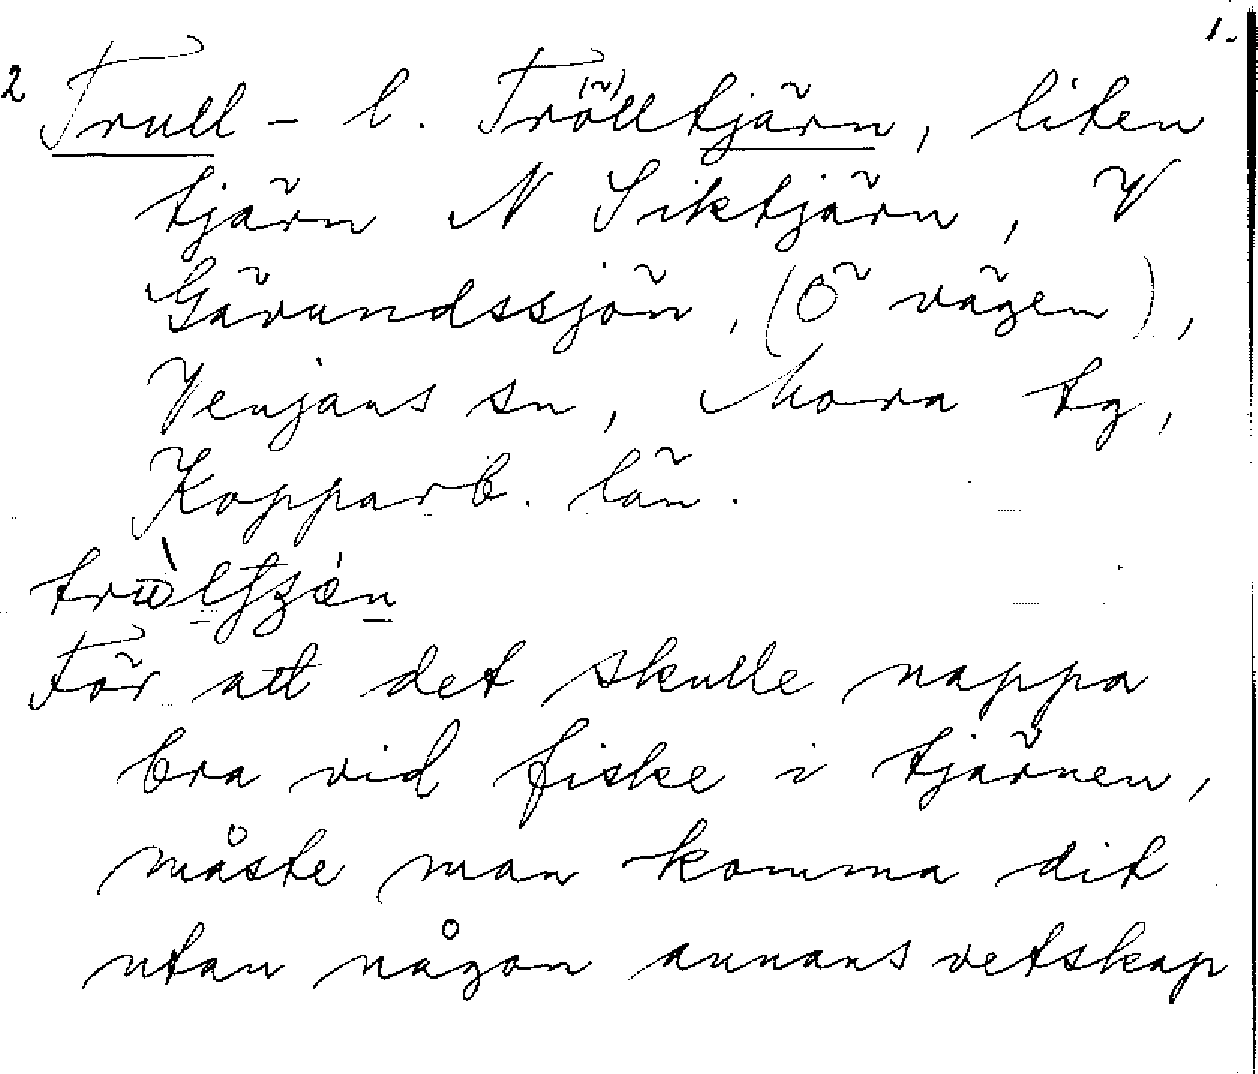 1.
2 Trull- l. Trölltjärn, liten
tjärn N Siktjärn, V
Gävundssjön, (Ö vägen),
Venjans sn, Mora tg,
Kopparb. län.
För att det skulle nappa
bra vid fiske i tjärnen,
måste man komma dit
utan någon annans vetskap